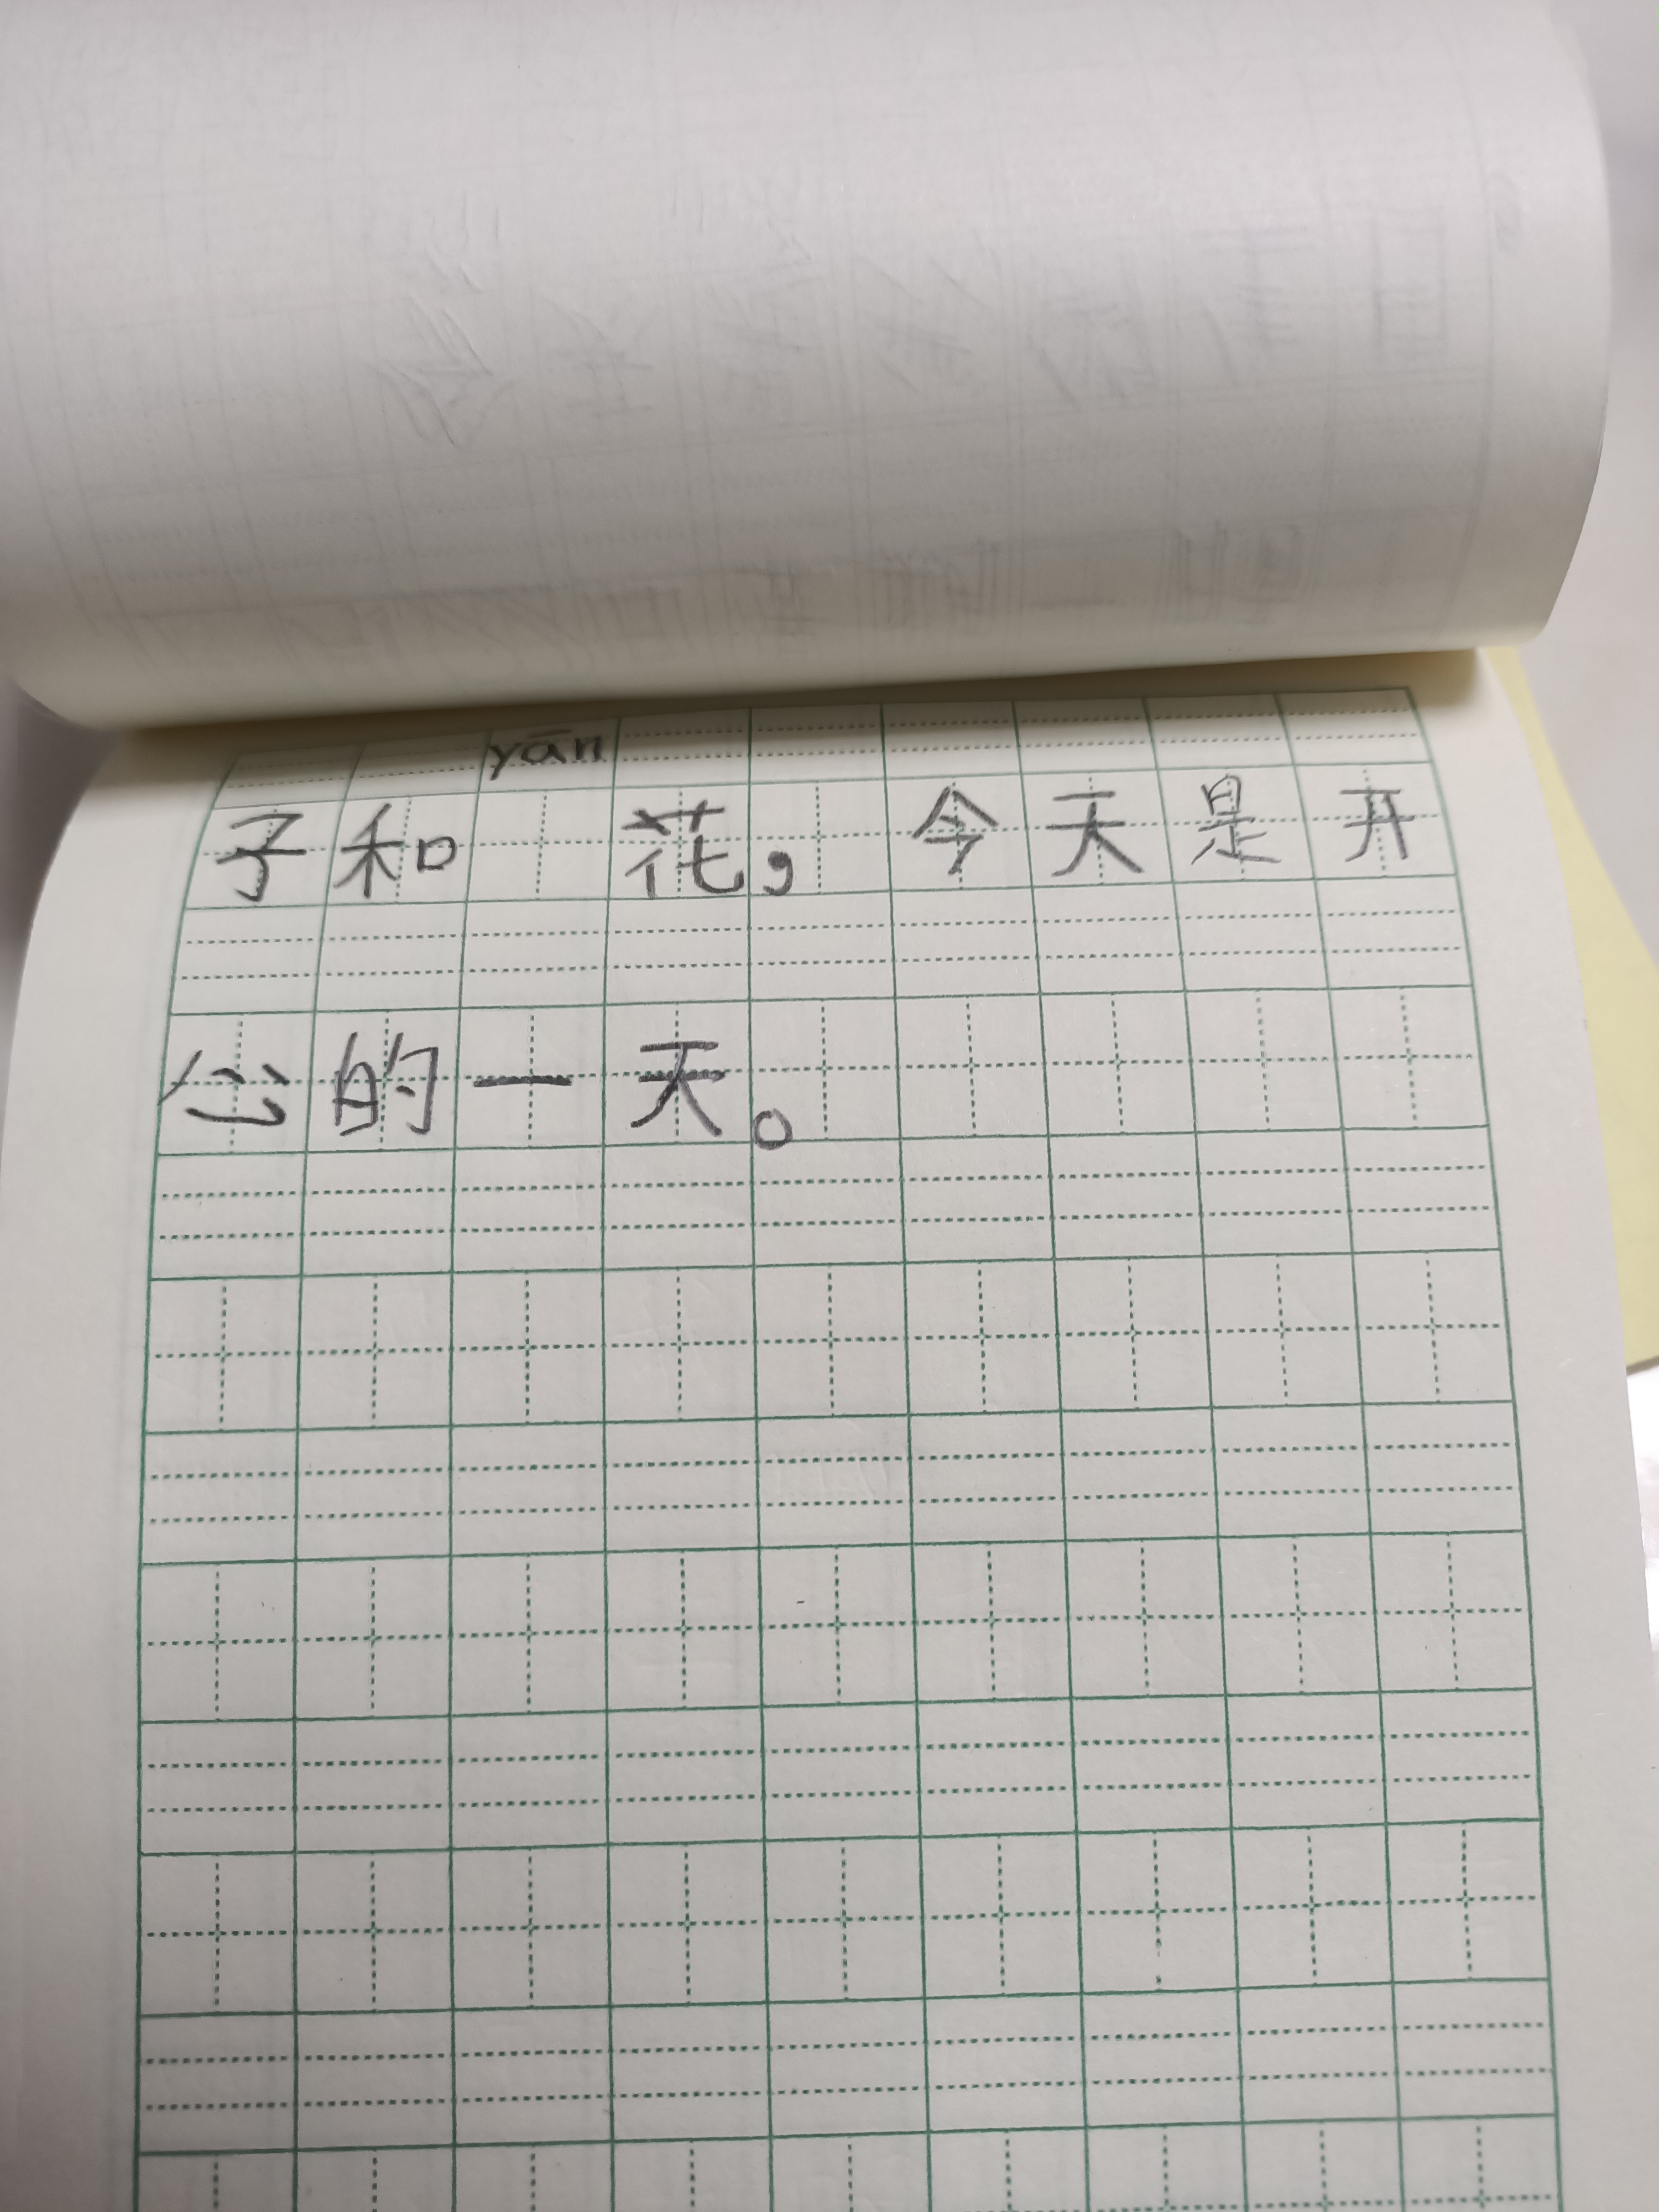 yān
子和 花，今天是开
心的一天。